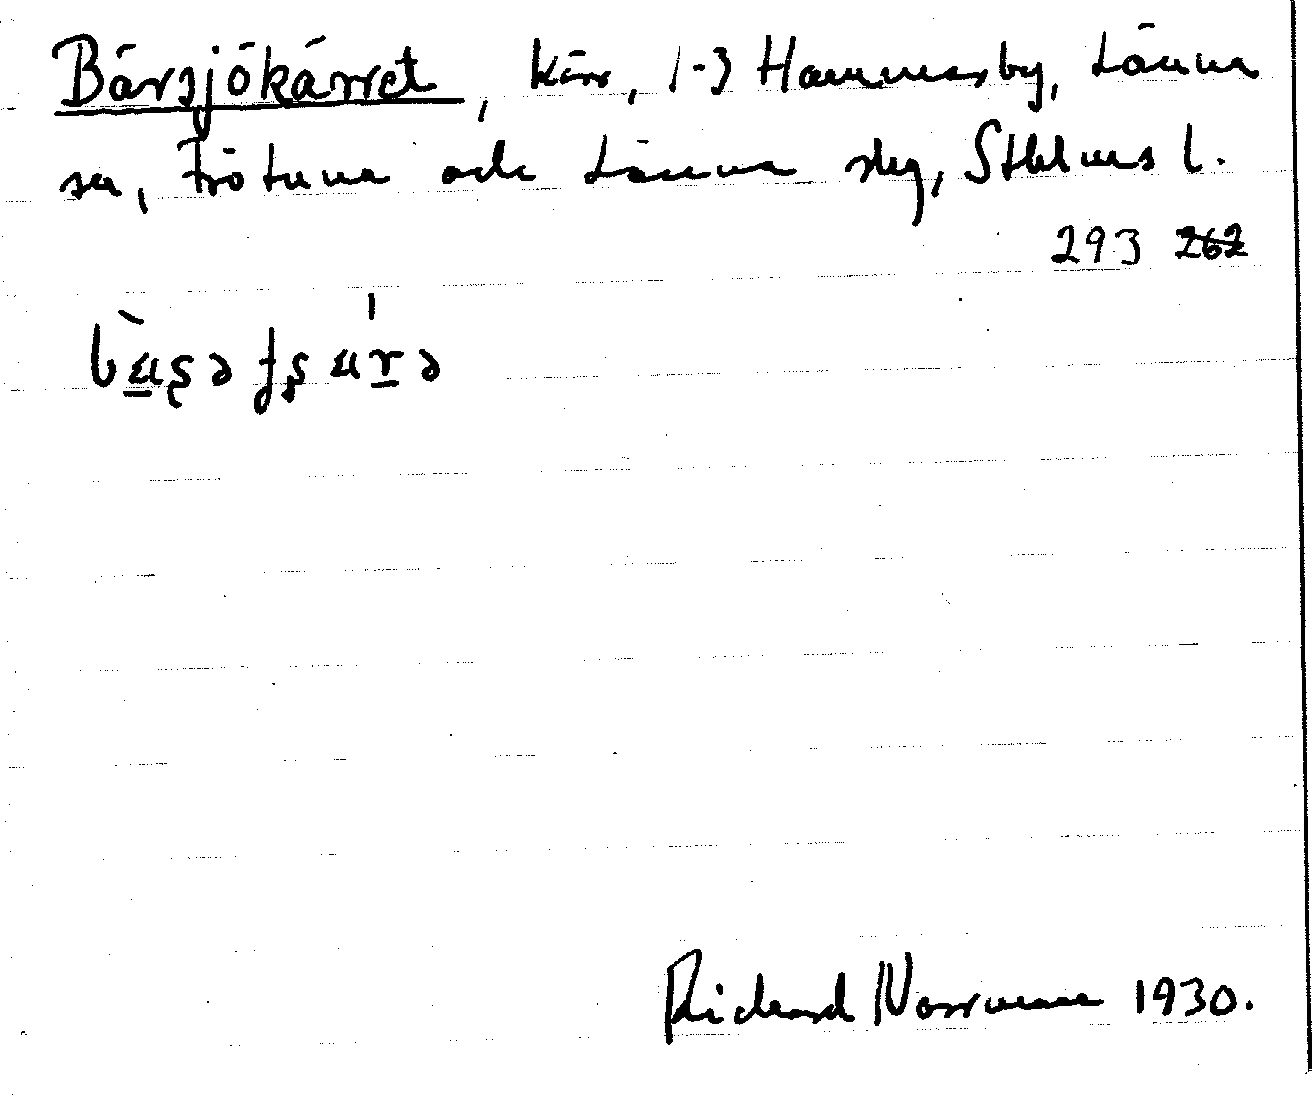 Bärsjökärret, kärr, 1-3 Hammarby, Länna
sn, Frötuna och Länna slg, Sthlms l.
293 262
Richard Norrman 1930.